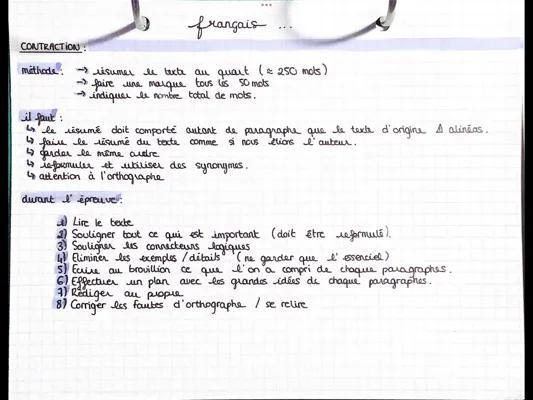 français ...
CONTRACTION :
méthode : → résumer le texte au quart (≈ 250 mots)
→ faire une marque tous les 50 mots
→ indiquer le nombre total de mots.
il faut :
↳ le résumé doit comporté autant de paragraphe que le texte d'origine Δ alinéas.
↳ faire le résumé du texte comme si nous étions l'auteur.
↳ garder le même ordre
↳ reformuler et utiliser des synonymes.
↳ attention à l'orthographe
durant l'épreuve :
1) Lire le texte
2) Souligner tout ce qui est important (doit être reformulé).
3) Souligner les connecteurs logiques
4) Eliminer les exemples / détails (ne garder que l'essenciel)
5) Ecrire au brouillon ce que l'on a compri de chaque paragraphes.
6) Effectuer un plan avec les grandes idées de chaque paragraphes.
7) Rédiger au propre
8) Corriger les fautes d'orthographe / se relire